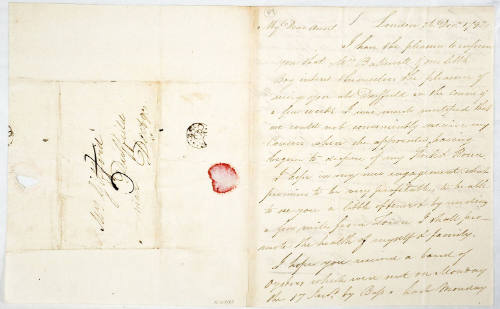 My Dear Aunt
London
Dec.
I have the pleasure to inform
you that Mrs Bakewell & our little
Boy intend themselves the pleasure of
seeing you at Duffield in the course of
a few weeks. I was much mortified that
we could not conveniently receive my
Cousin when she approved having
begun to dispose of my Furd. House.
I hope in my new engagement which
promises to be very profitable to be able
to see you a little oftener & by residing
a few miles from Town I shall pro-
mote the health of myself & family.
I hope you received a barrel of
Oysters which were sent on Monday
the 17 Inst. by Boss a had Monday
Mrs
Duffield
near Derby